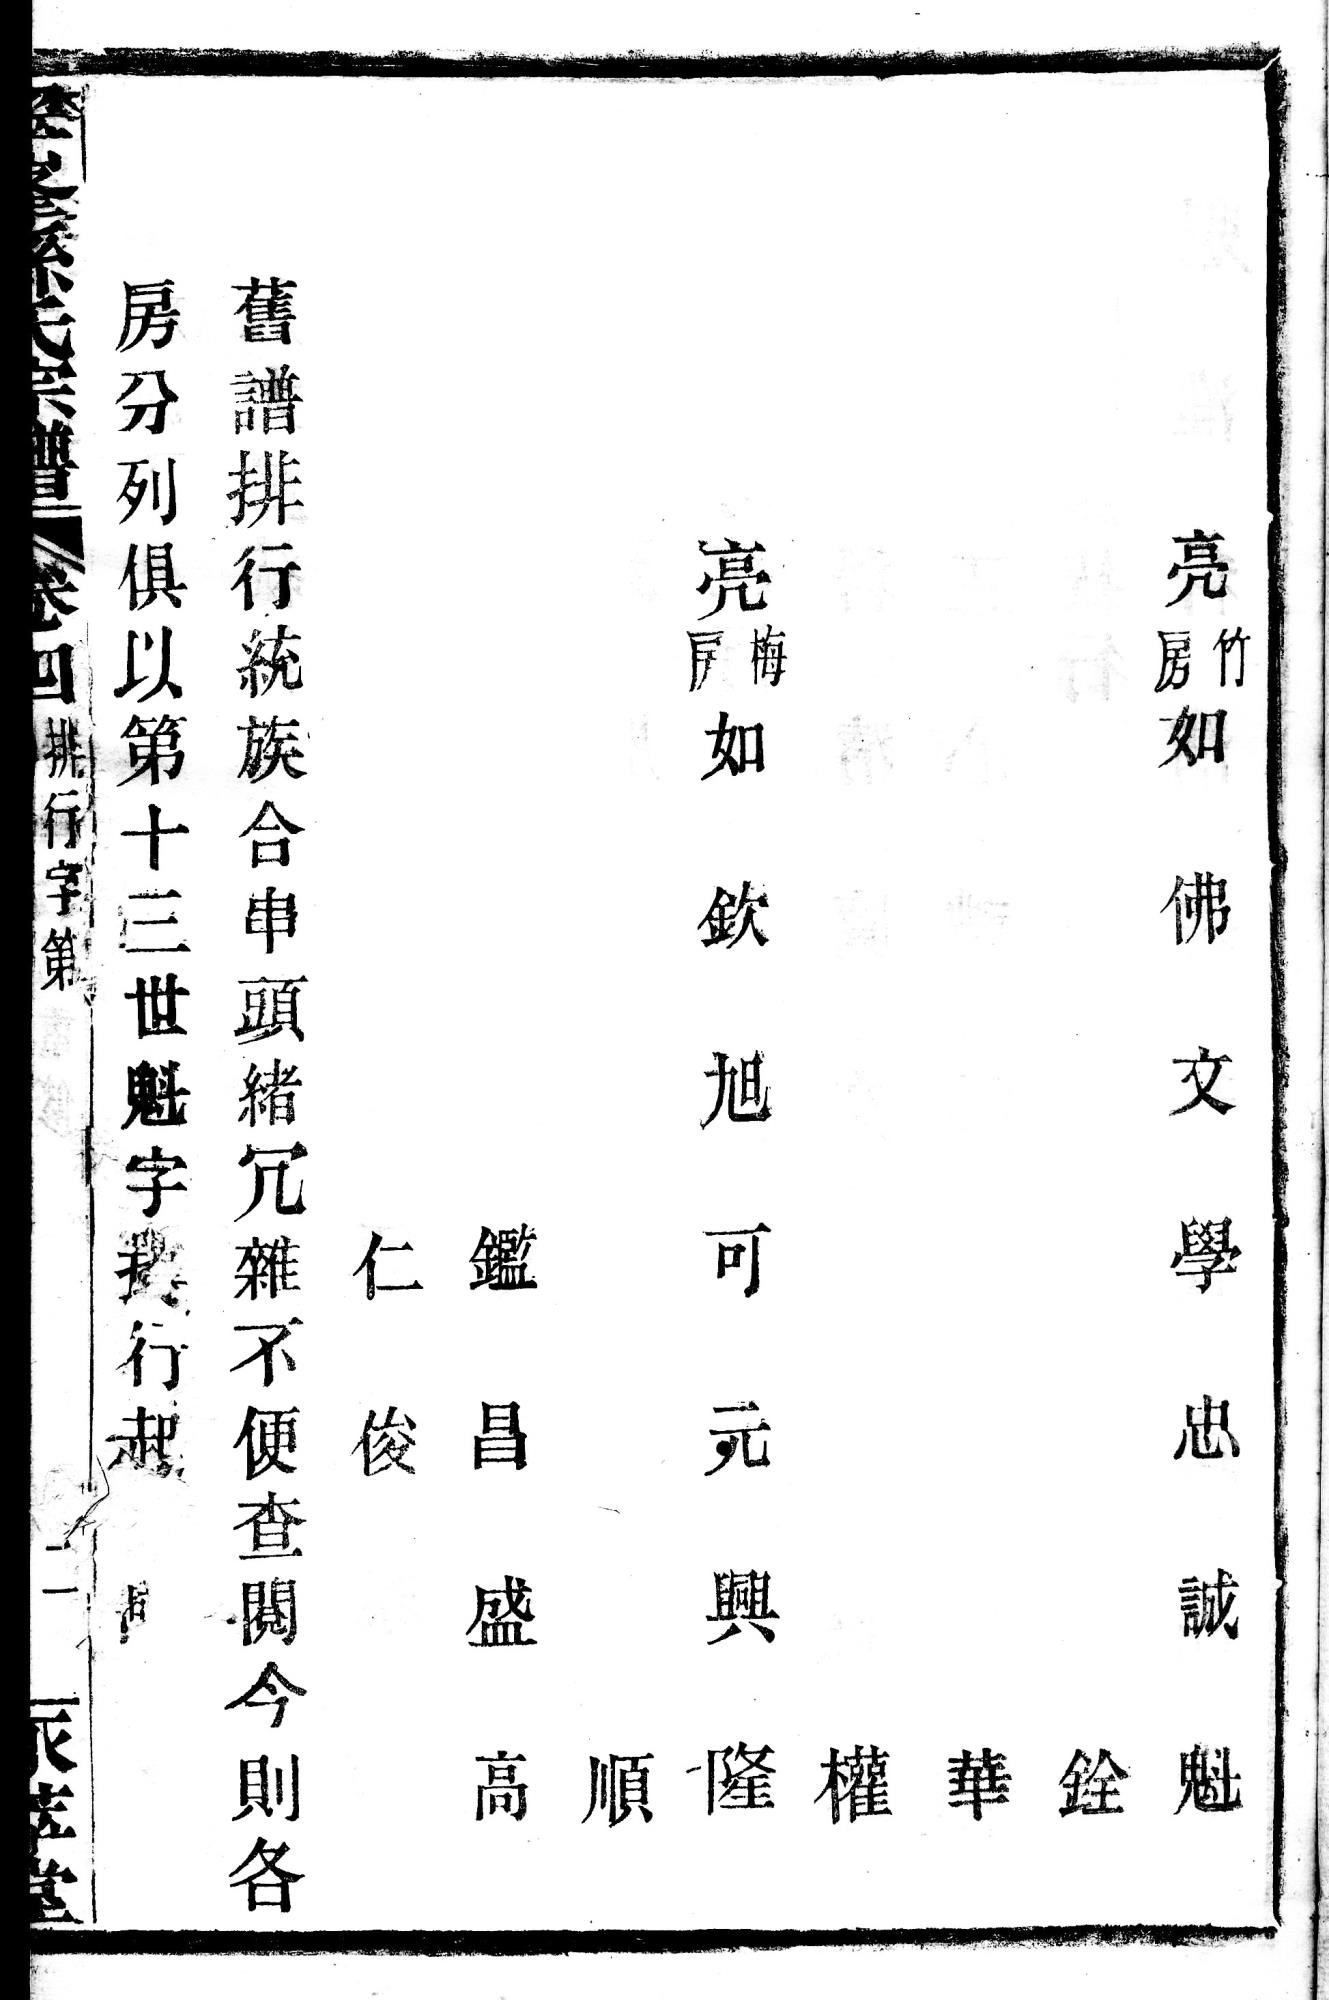 亮竹房如佛文學忠誠魁
銓
華
權
亮梅房如欽旭可元興隆
順
鑑昌盛高
仁俊
舊譜排行統族合串頭緒冗雜不便查閱今則各
房分列俱以第十三世魁字排行起
孫氏宗譜 卷四 排行字第 二 萃堂